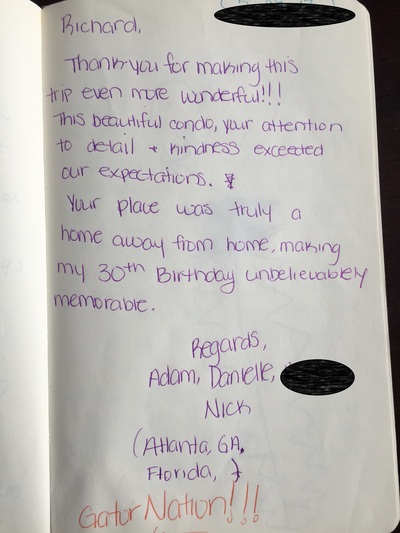 Richard,
Thank you for making this
trip even more wonderful!!!
This beautiful condo, your attention
to detail + kindness exceeded
our expectations.
Your place was truly a
home away from home, making
my 30th Birthday unbelievably
memorable.
Regards,
Adam, Danielle,
Nick
(Atlanta, GA,
Florida, )
Gator Nation!!!